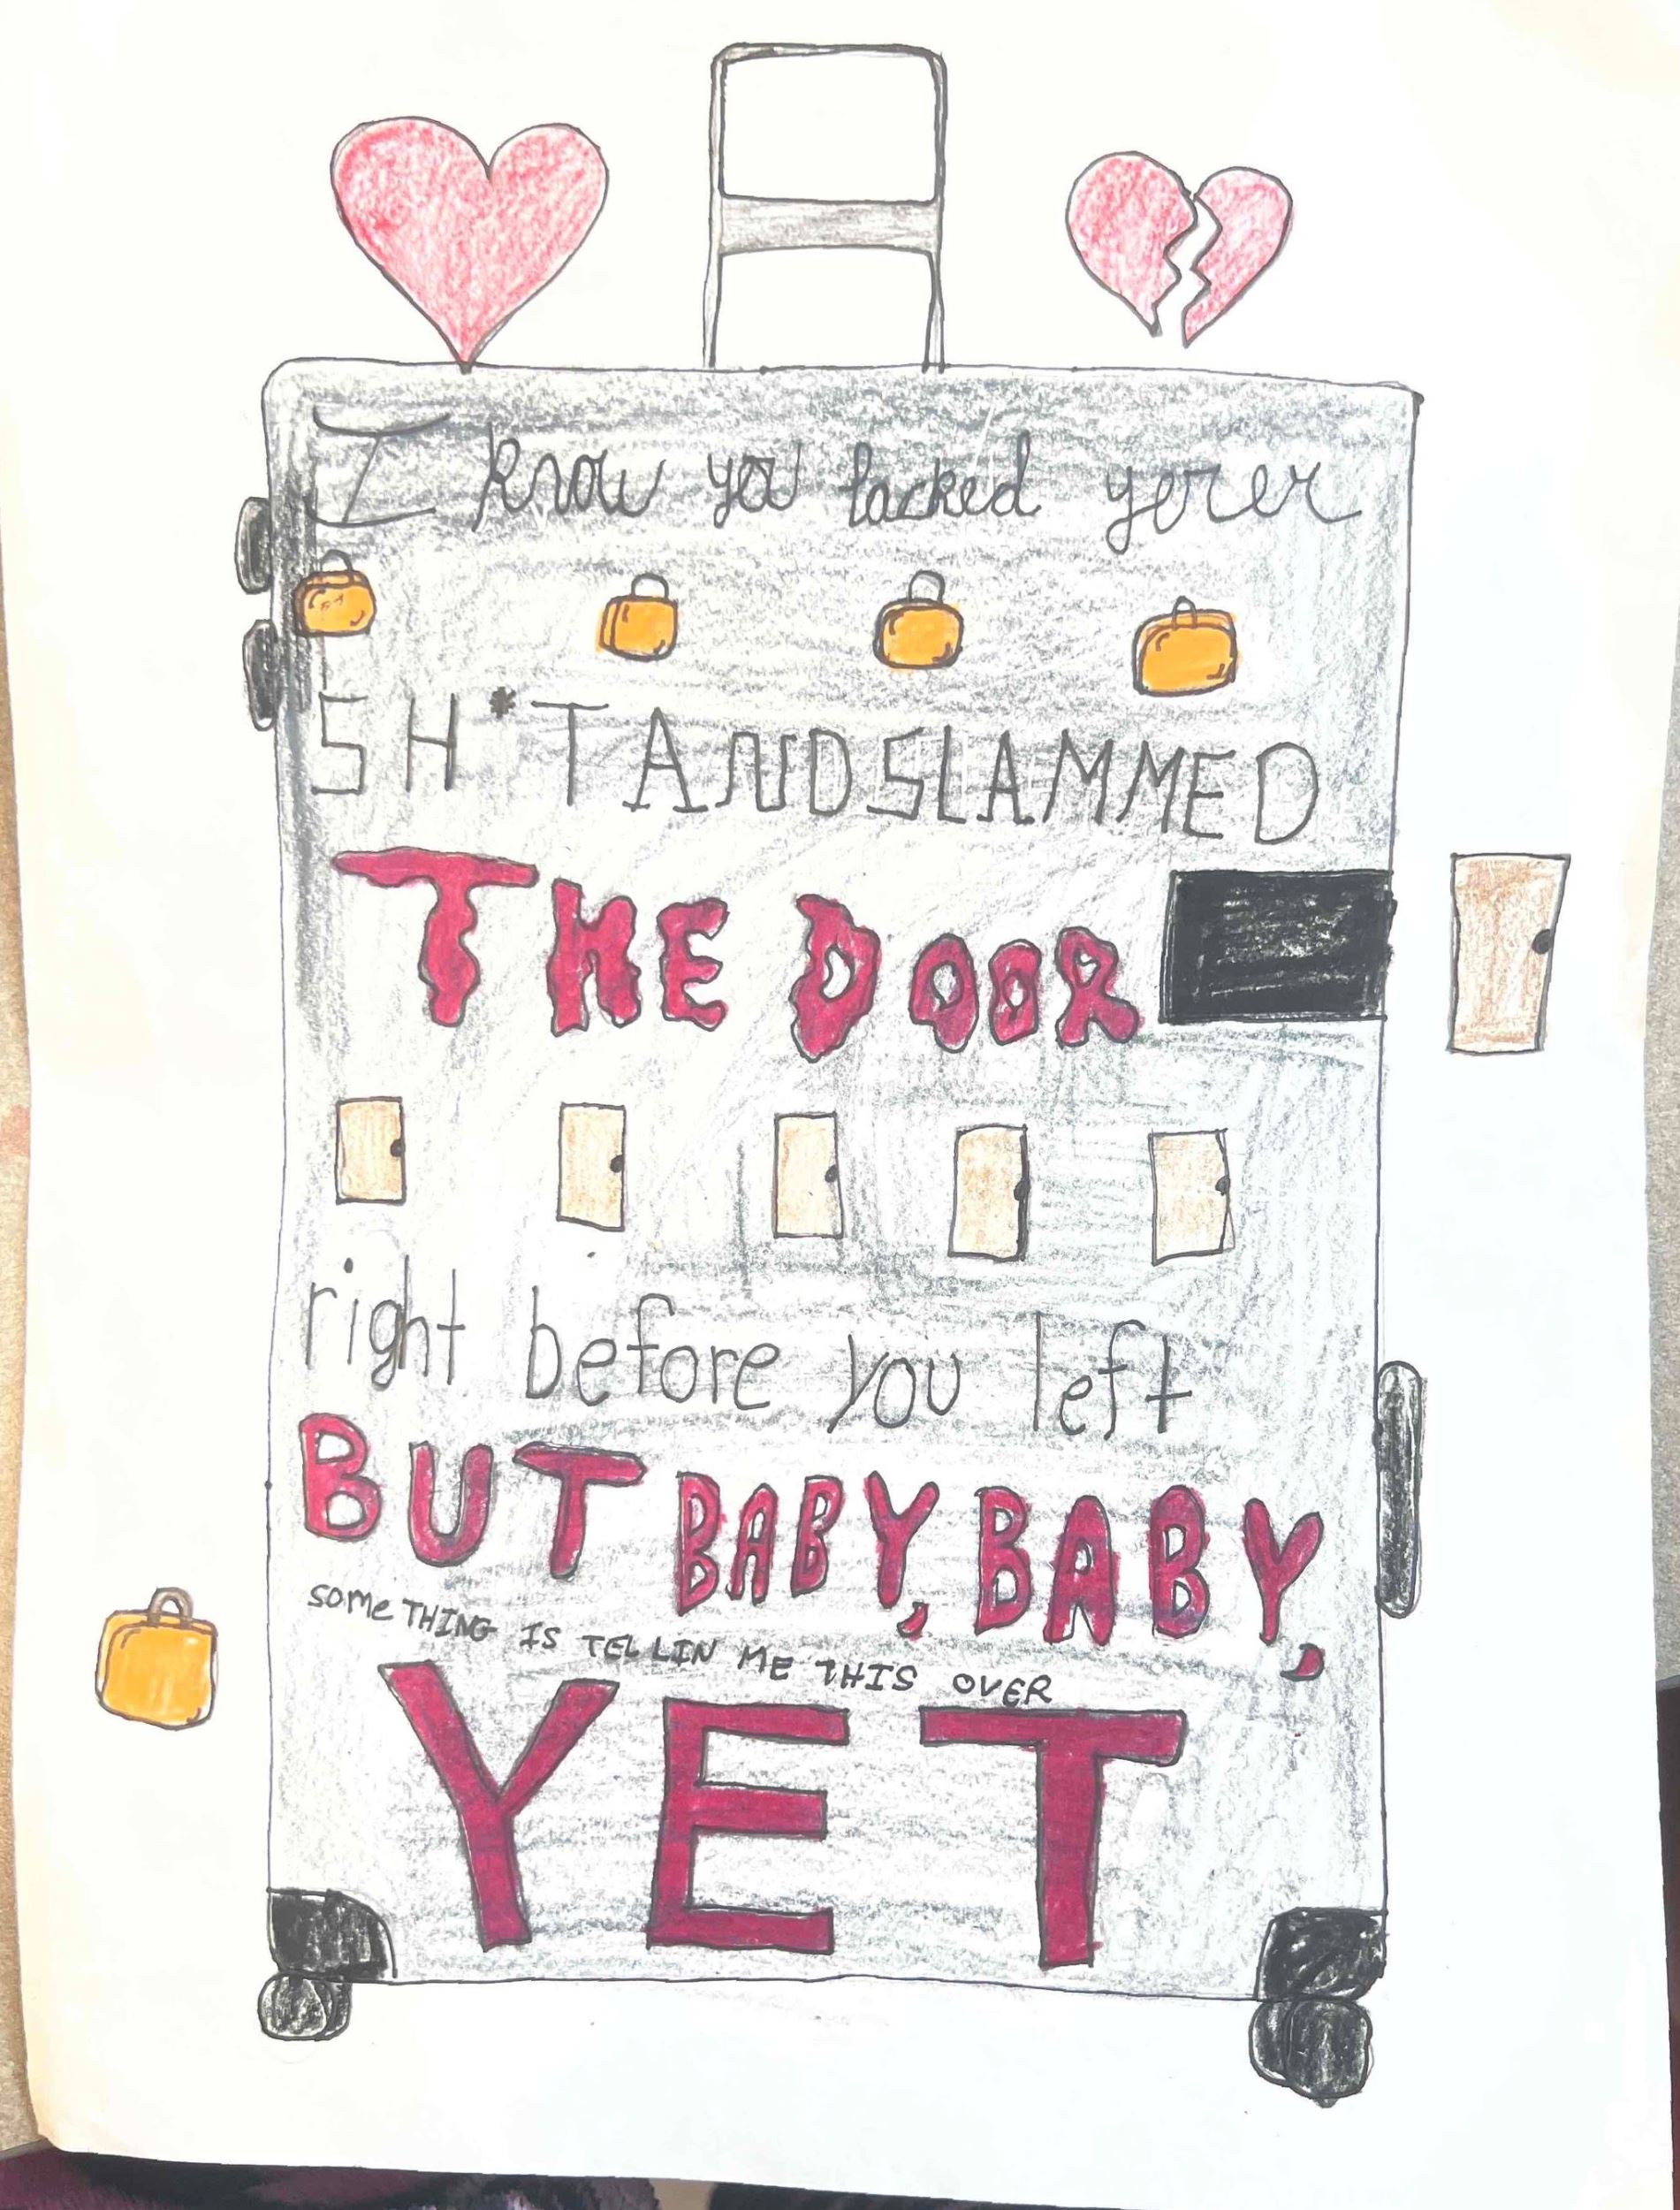 I know you packed yourer
SH*T AND SLAMMED
THE DOOR
right before you left
BUT BABY, BABY,
SOMETHING IS TELLIN ME THIS OVER
YET